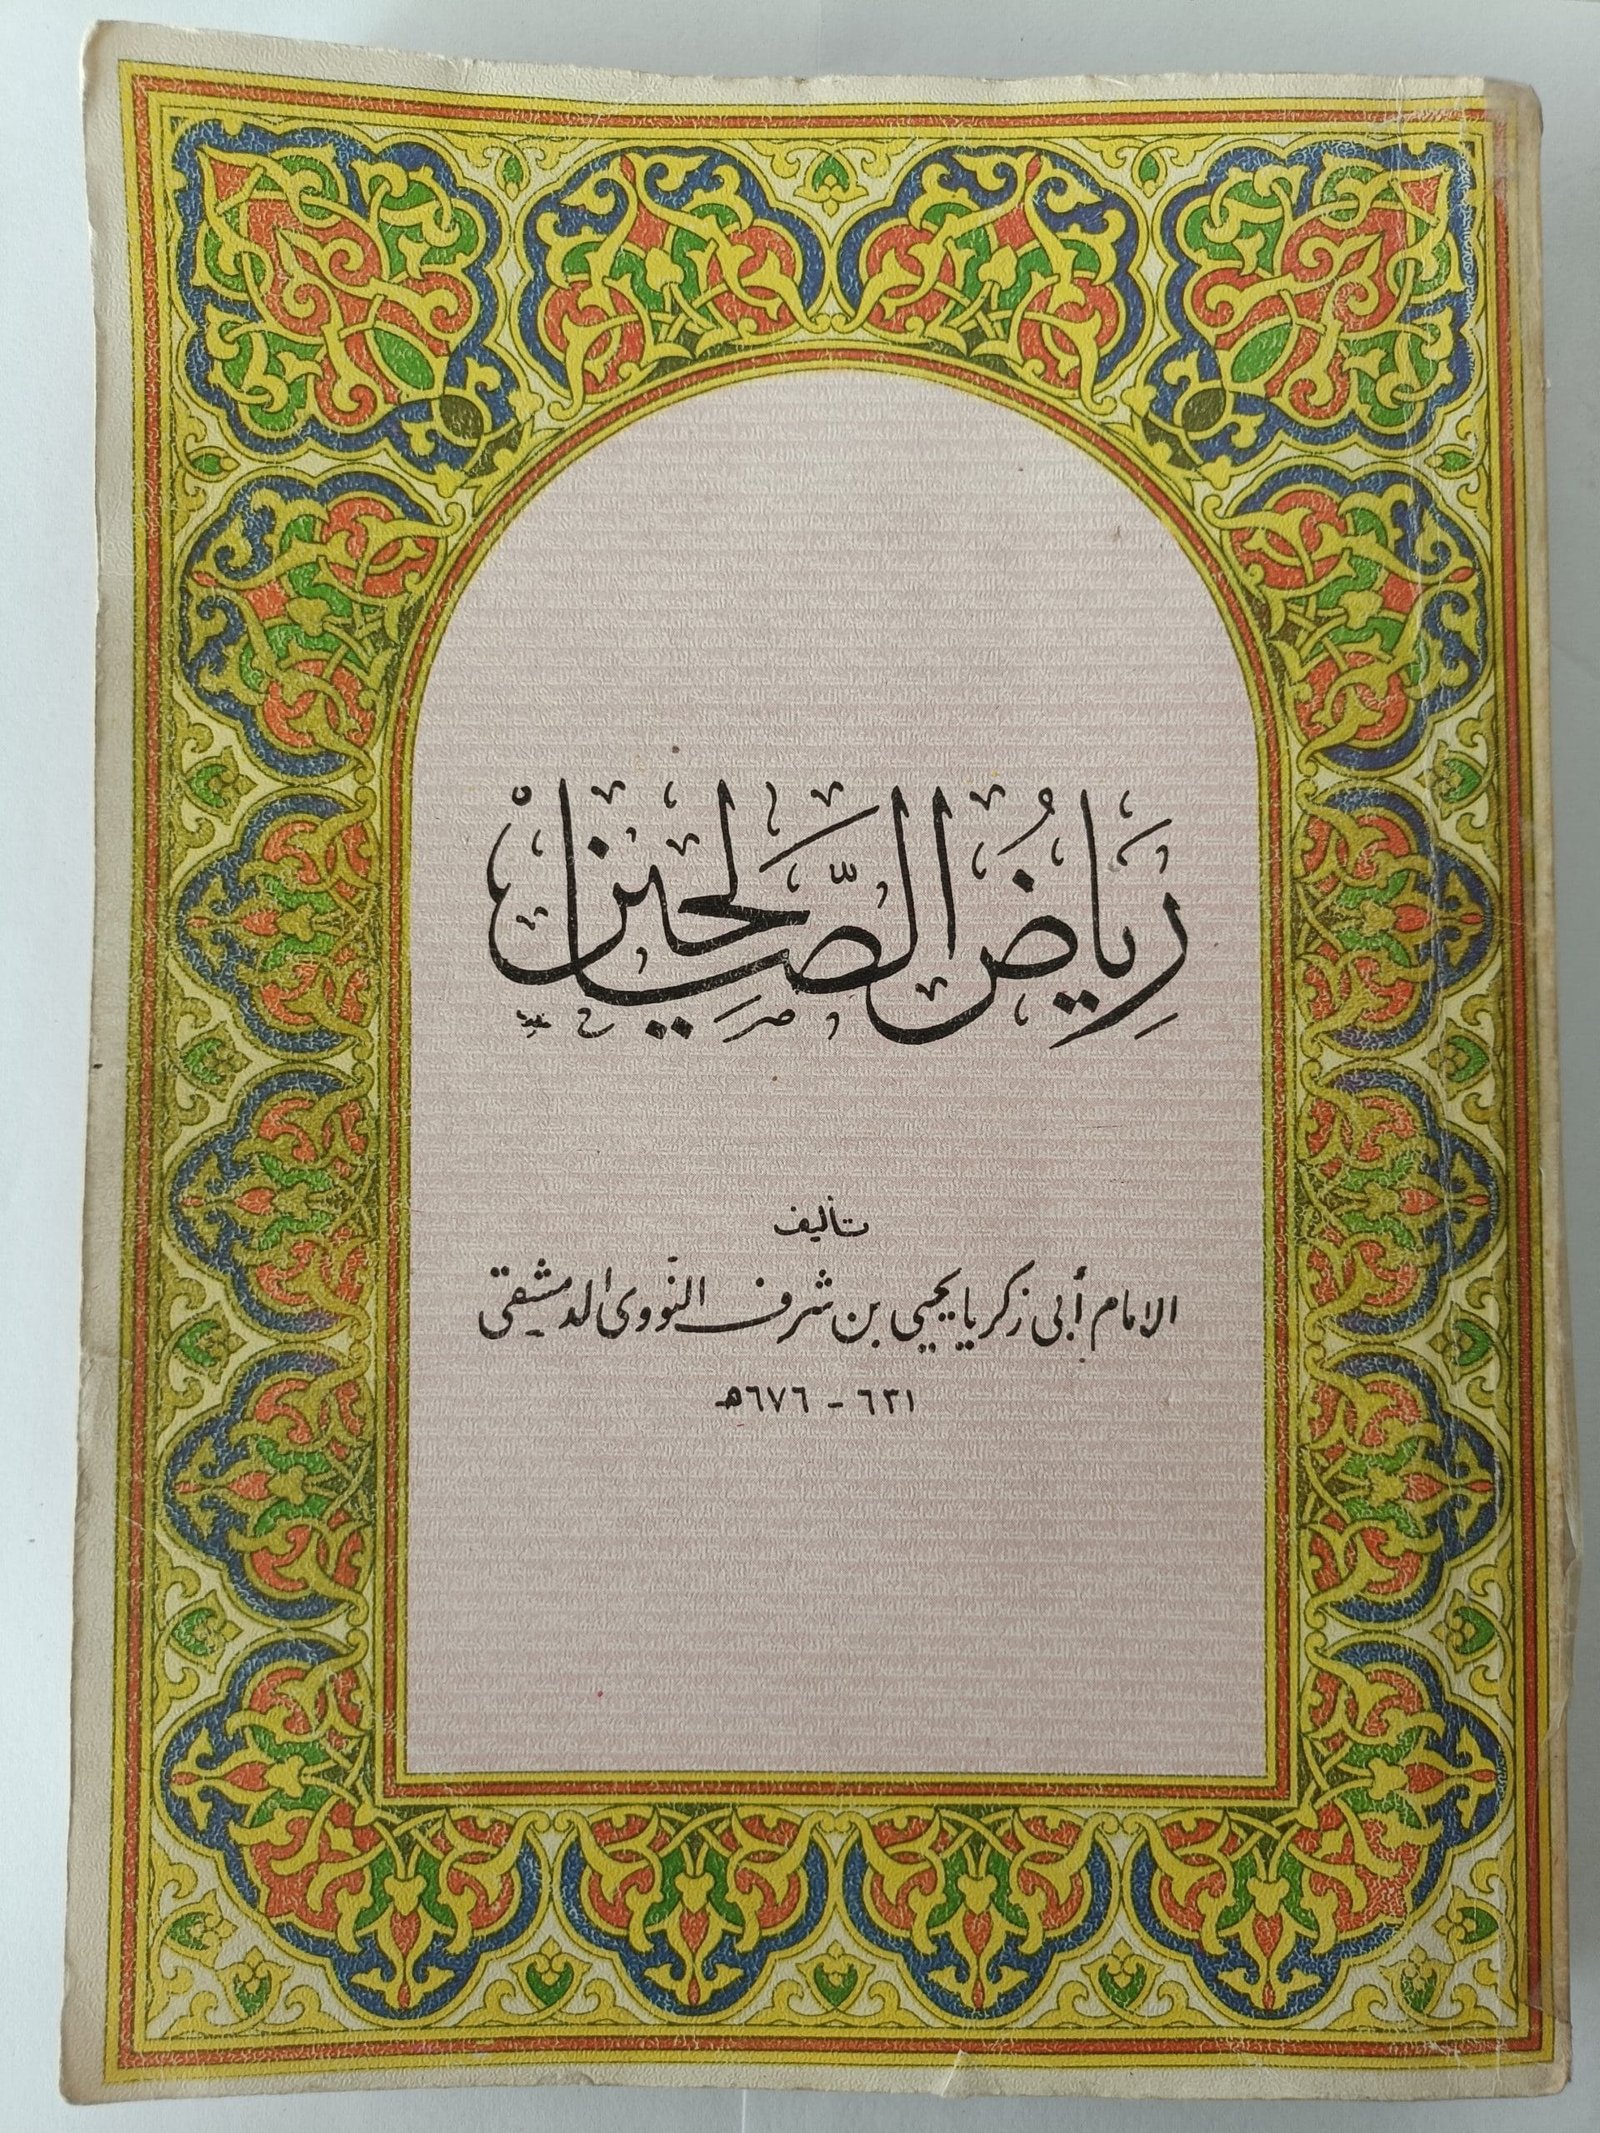 رِيَاضُ الصَّالِحِينْ
تأليف
الامام أبى زكريا يحيى بن شرف النّووى الدمشقى
٦٣١ - ٦٧٦هـ